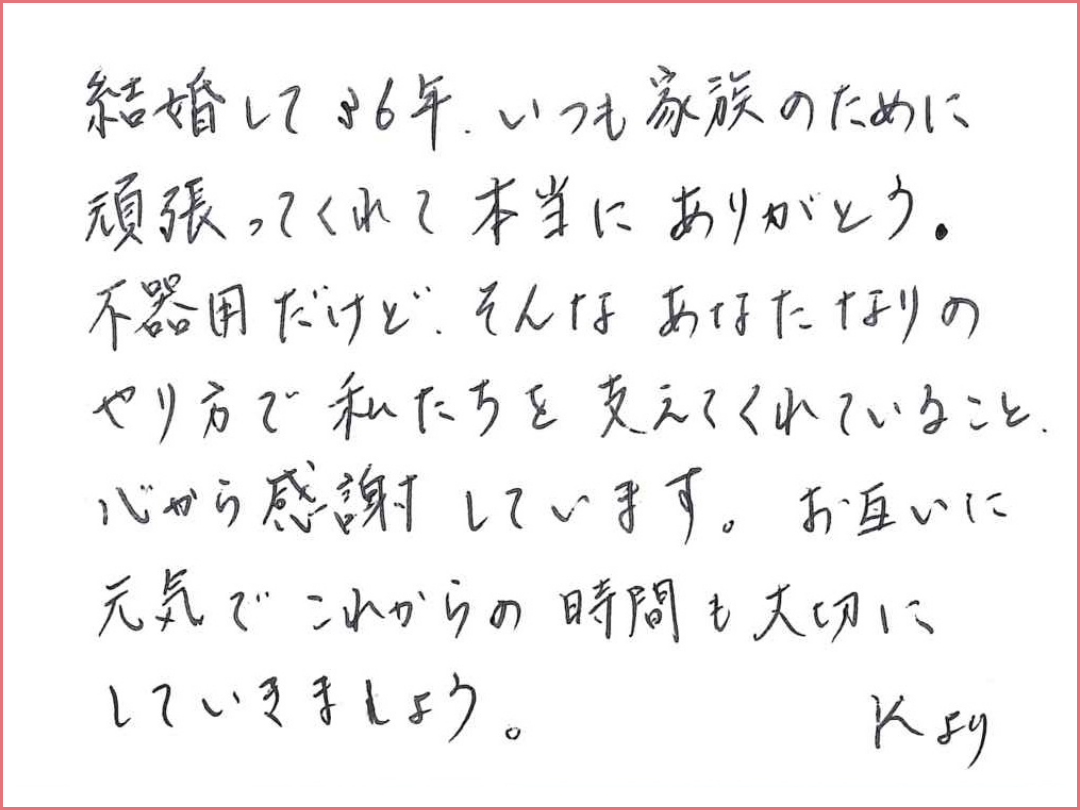 結婚して36年、いつも家族のために
頑張ってくれて本当にありがとう。
不器用だけど、そんなあなたなりの
やり方で私たちを支えてくれていること、
心から感謝しています。お互いに
元気でこれからの時間も大切に
していきましょう。
Kより